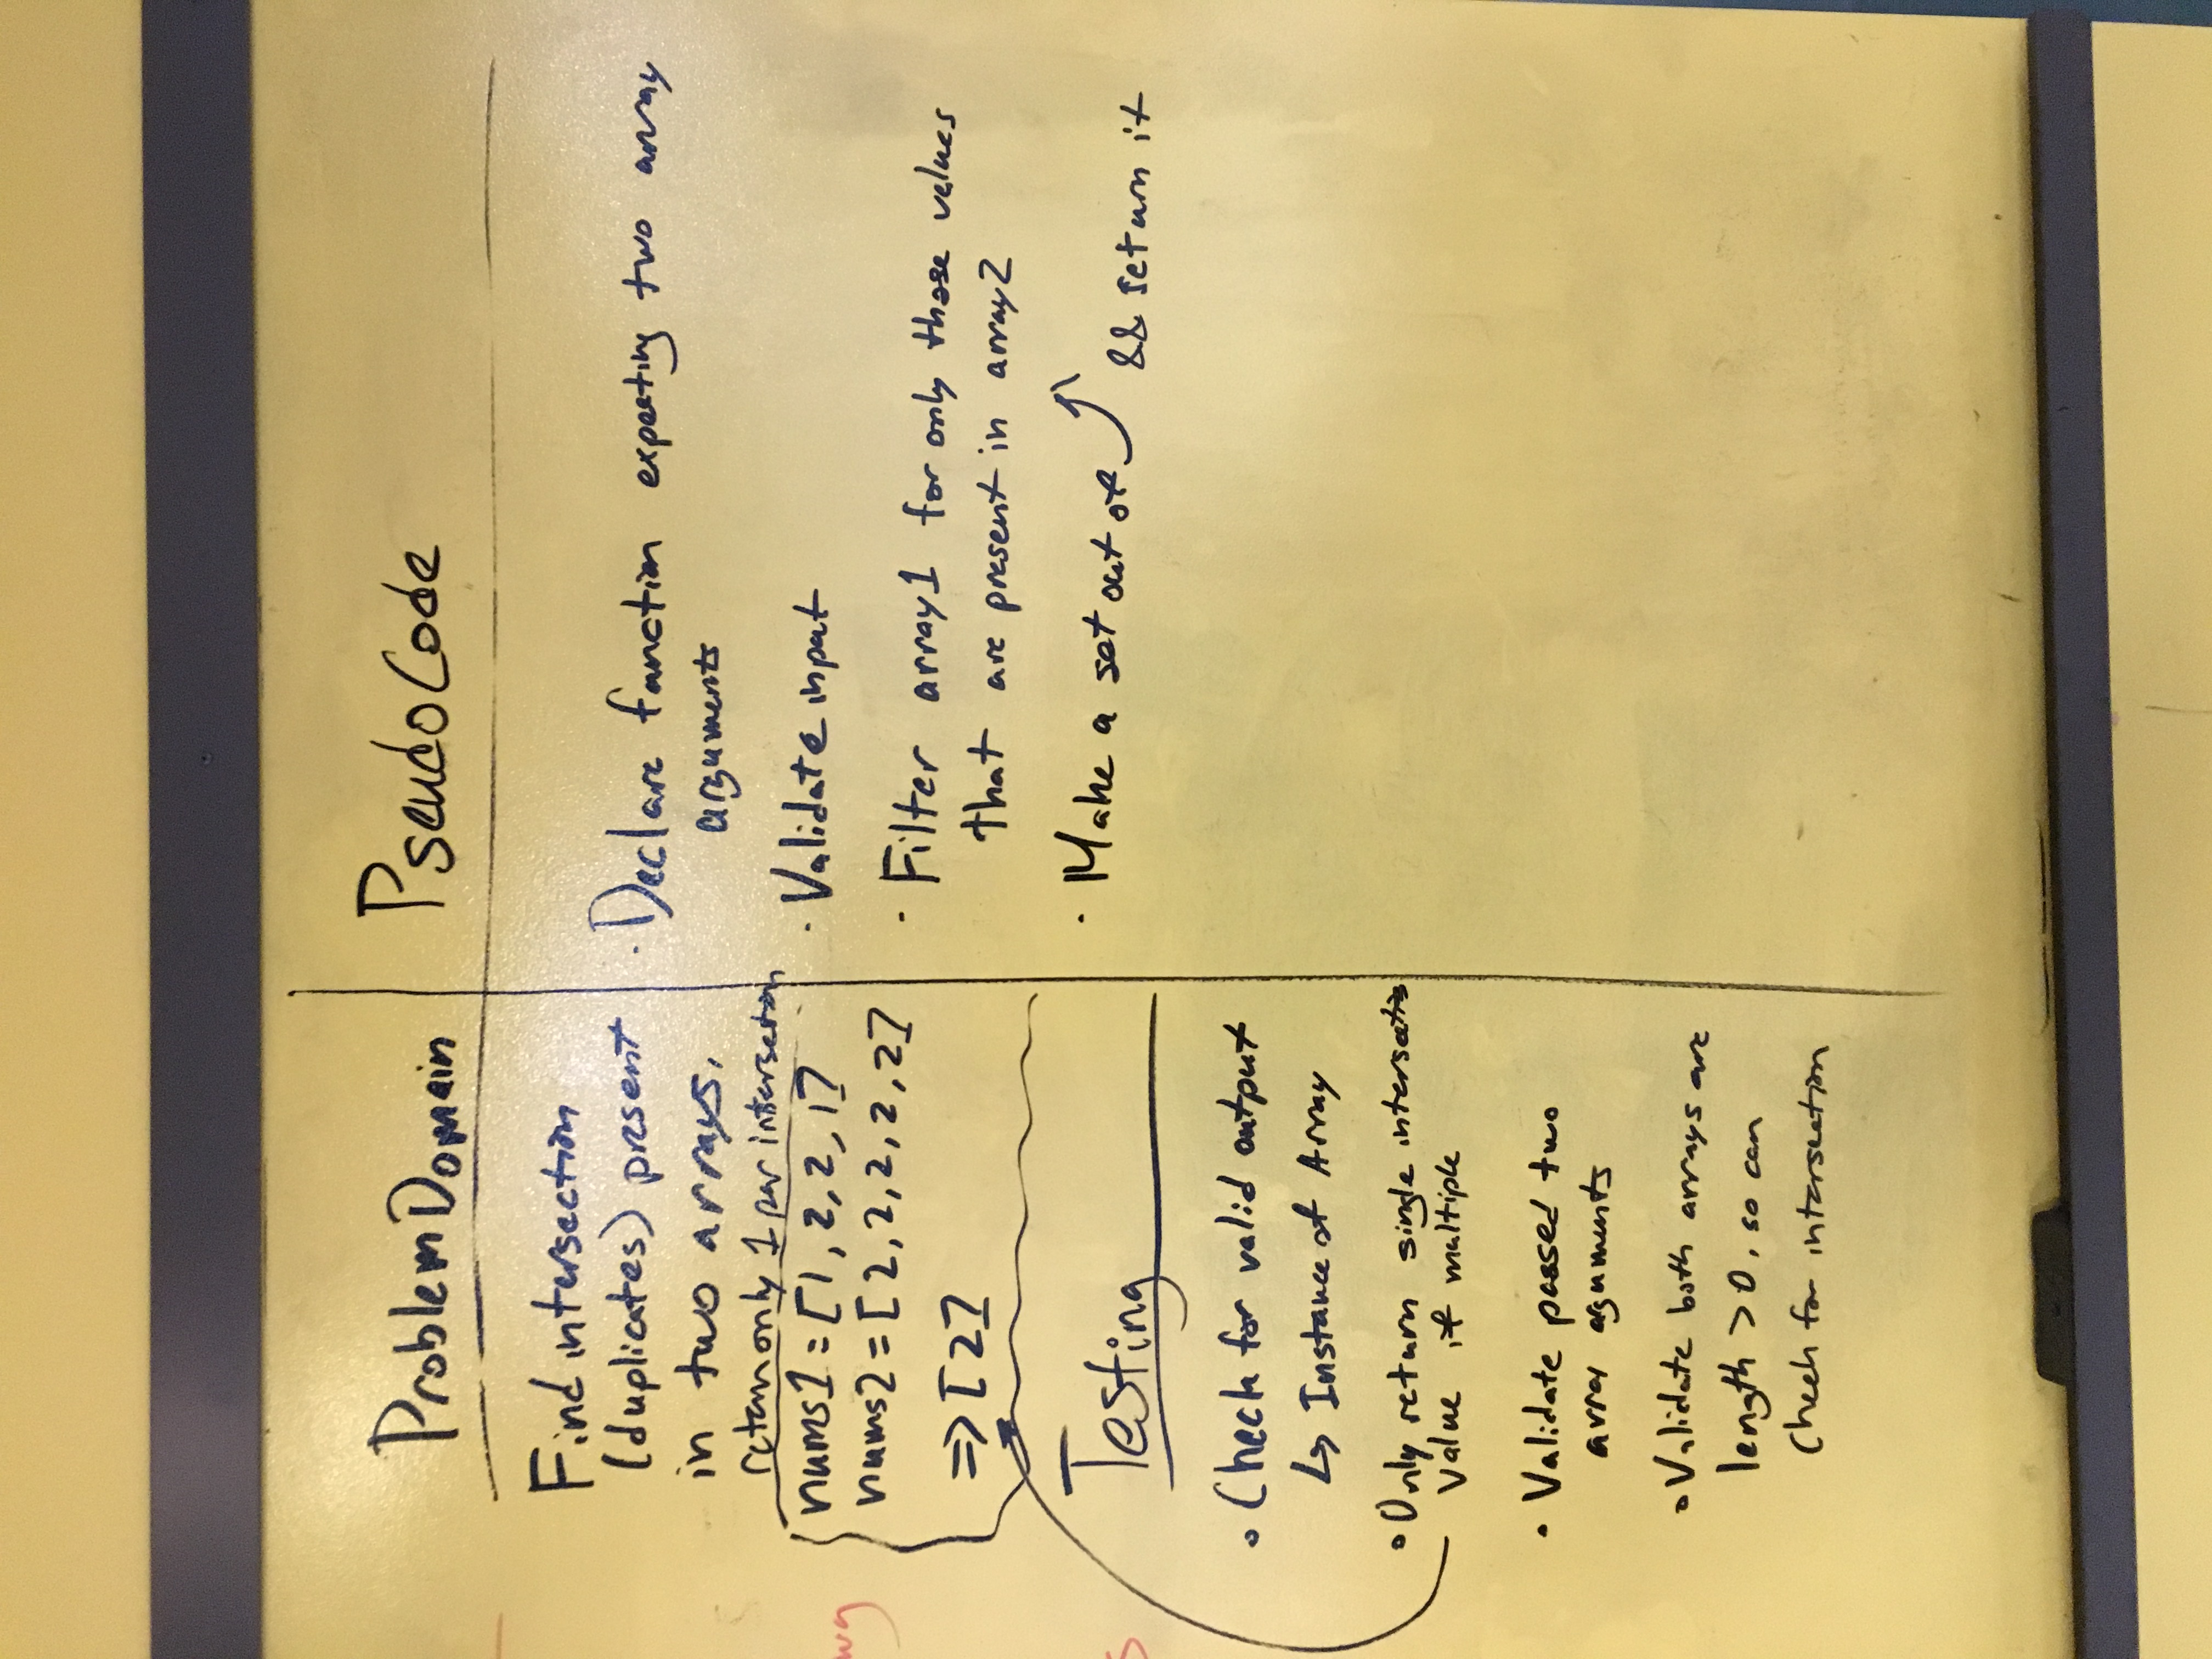 Problem Domain
Find intersection
(duplicates) present
in two arrays.
return only 1 per intersection
nums1 = [1, 2, 2, 1]
nums2 = [2, 2, 2, 2, 2]
=> [2]
Testing
Check for valid output
↳ Instance of Array
Only return single intersection
value if multiple
Validate passed two
array arguments
Validate both arrays are
length > 0, so can
Check for intersection
PseudoCode
Declare function expecting two array
arguments
Validate input
Filter array1 for only those values
that are present in array2
Make a set out of && return it